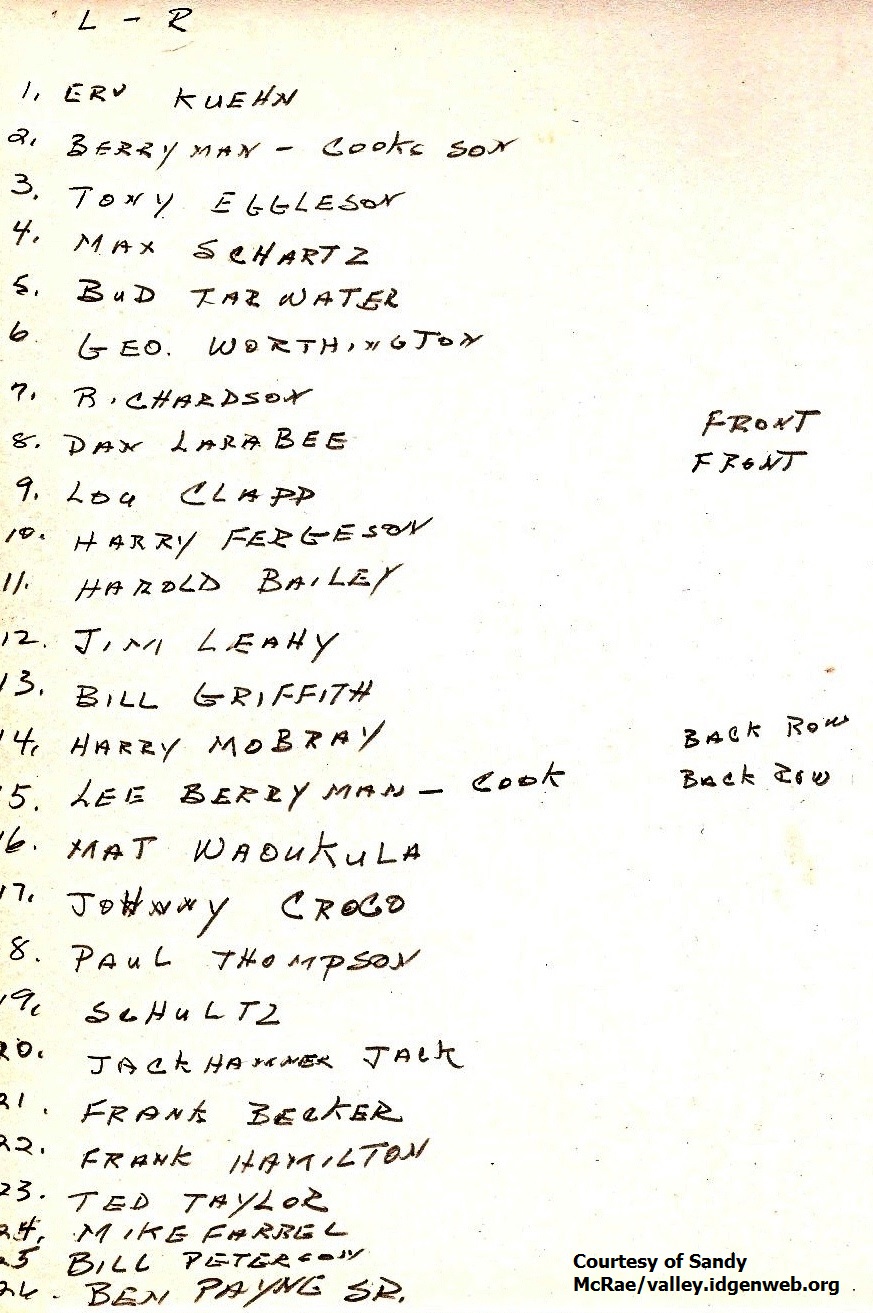 L - R
1. ERV KUEHN
2. BERRYMAN - COOKS SON
3. TONY EGGLESON
4. MAX SCHARTZ
5. BUD TARWATER
6 GEO. WORTHINGTON
7. RICHARDSON
FRONT
8. DAN LARABEE
FRONT
9. LOU CLAPP
10. HARRY FERGESON
11. HAROLD BAILEY
12. JIM LEAHY
13. BILL GRIFFITH
14. HARRY MOBRAY
BACK ROW
5. LEE BERRYMAN - COOK
BACK ROW
6. MAT WAOUKULA
17. JOHNNY CROCO
8. PAUL THOMPSON
19. SCHULTZ
20. JACKHAMMER JACK
21. FRANK BECKER
22. FRANK HAMILTON
23. TED TAYLOR
24. MIKE FARREL
25 BILL PETERSON
26. BEN PAYNE SR.
Courtesy of Sandy
McRae/valley.idgenweb.org